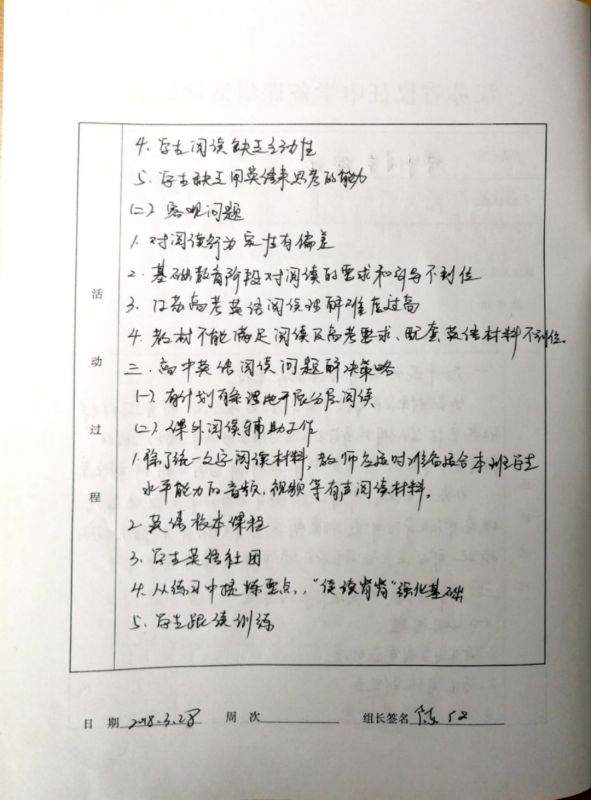 4. 学生阅读缺乏主动性
5. 学生缺乏用英语来思考的能力
(二) 客观问题
1. 对阅读行为定性有偏差
2. 基础教育阶段对阅读的要求和引导不到位
3. 江苏高考英语阅读理解难度过高
4. 教材不能满足阅读及高考要求、配套英语材料不到位。
三. 高中英语阅读问题解决策略
(一) 有计划有条理地开展分层阅读
(二) 课外阅读辅助工作
1. 除了统一文字阅读材料, 教师应适时准备适合本班学生
水平能力的音频, 视频等有声阅读材料。
2. 英语校本课程
3. 学生英语社团
4. 从练习中提炼要点, "读读背背"强化基础
5. 学生跟读训练
活动过程
日 期 2018.3.28 周 次 组长签名 陈